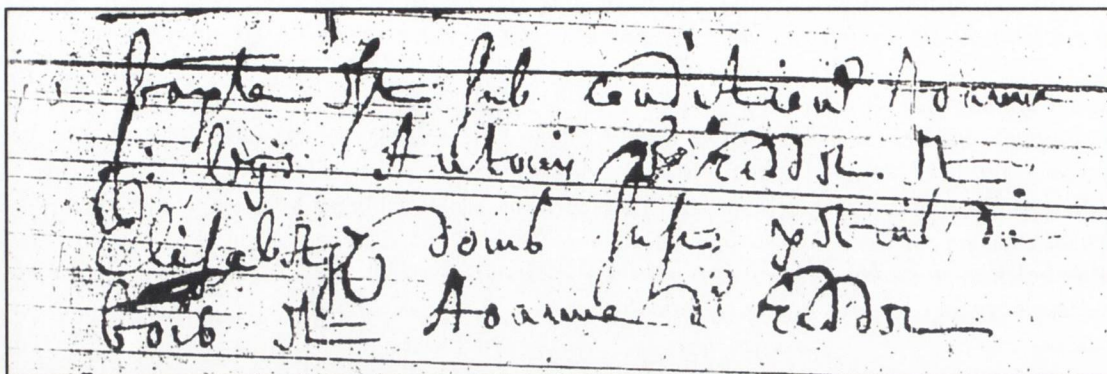 bapta est sub conditione Joanna
fi: legis Antonij De Ridder. et
Elisabeth susc: petrus du
bois et Joanna d' Ridder